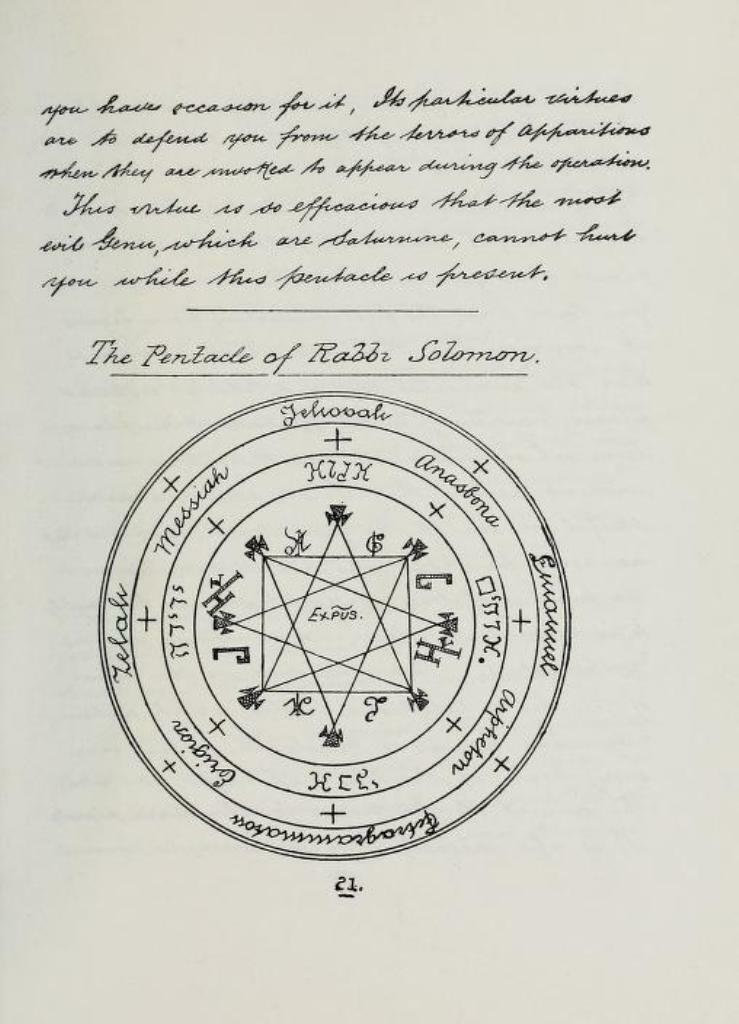 you have occasion for it, Its particular virtues
are to defend you from the terrors of Apparitions
when they are invoked to appear during the operation.
This virtue is so efficacious that the most
evil Genii, which are Saturnine, cannot hurt
you while this pentacle is present.
The Pentacle of Rabbi Solomon.
Jehovah
Anasbona
Emanuel
Aripheton
Tetragrammaton
Erigion
Zelah
Messiah
EXPUS.
21.